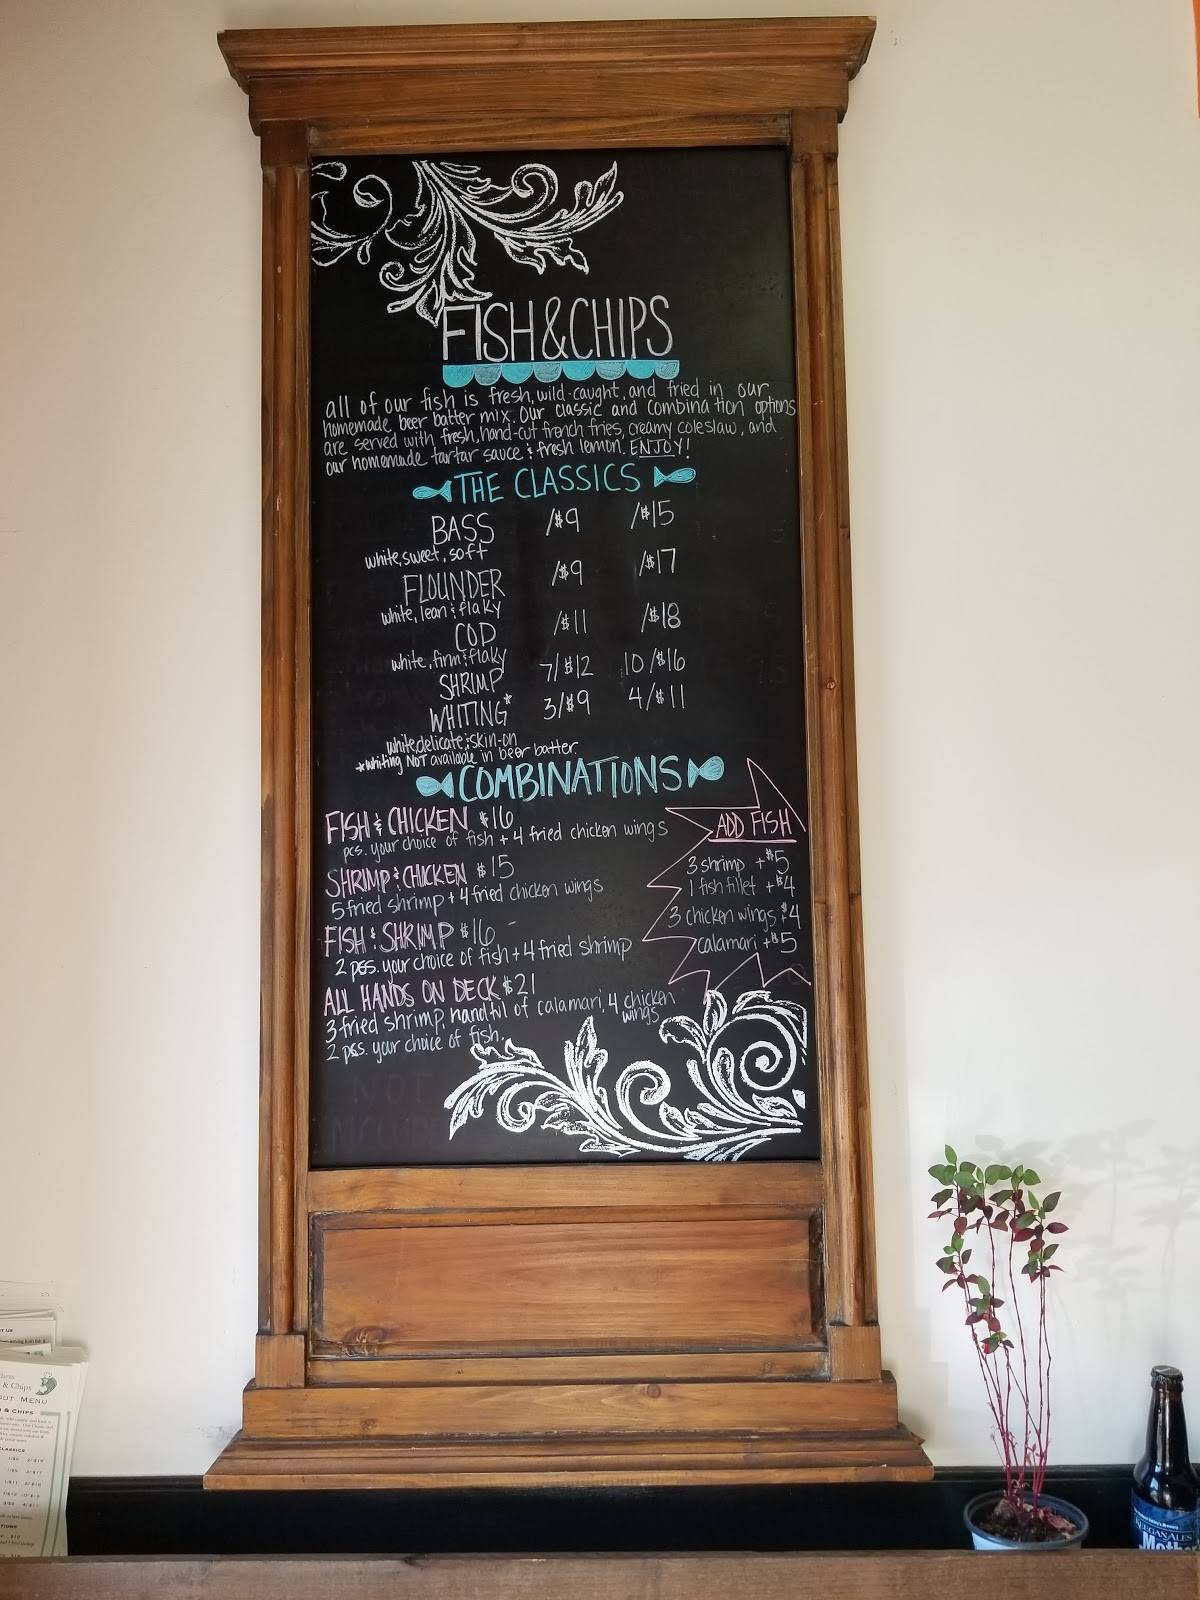 FISH & CHIPS
all of our fish is fresh, wild-caught, and fried in our
homemade beer batter mix. Our classic and combination options
are served with fresh, hand-cut french fries, creamy coleslaw, and
our homemade tartar sauce & fresh lemon. ENJOY!
THE CLASSICS
BASS /$9 /$15
white, sweet, soft
FLOUNDER /$9 /$17
white, lean & flaky
COD /$11 /$18
white, firm & flaky
SHRIMP 7/$12 10/$16
WHITING* 3/$9 4/$11
white, delicate, & skin-on
*whiting NOT available in beer batter.
COMBINATIONS
FISH & CHICKEN $16
pcs. your choice of fish + 4 fried chicken wings
SHRIMP & CHICKEN $15
5 fried shrimp + 4 fried chicken wings
FISH & SHRIMP $16
2 pss. your choice of fish + 4 fried shrimp
ALL HANDS ON DECK $21
3 fried shrimp, handful of calamari, 4 chicken
wings
2 pss. your choice of fish.
ADD FISH
3 shrimp +$5
1 fish fillet +$4
3 chicken wings +$4
calamari +$5
& Chips
OUT MENU
& CHIPS
CLASSICS
KEEGAN ALES
Moth